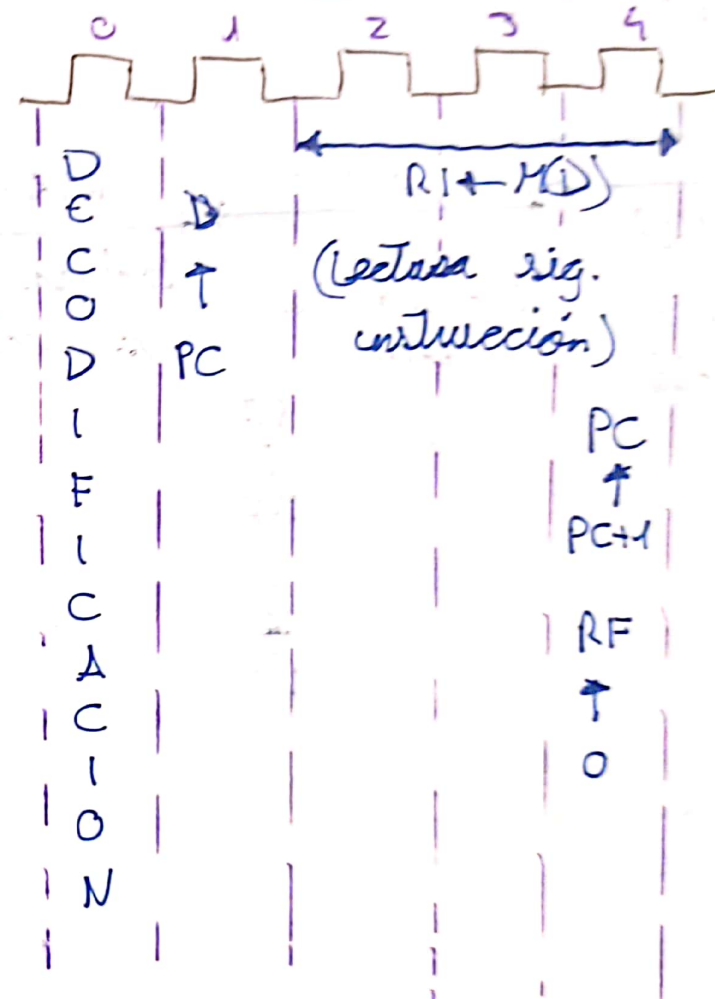 0 1 2 3 4
DECODIFICACION
D
↑
PC
RI ← M(D)
(Lectura sig.
instrucción)
PC
↑
PC+1
RF
↑
0